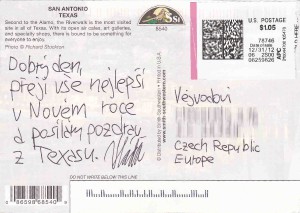 SAN ANTONIO
TEXAS
Second to the Alamo, the Riverwalk is the most visited
site in all of Texas. With its open air cafes, art galleries,
and specialty shops, there is bound to be something for
everyone to enjoy.
Photo © Richard Stockton
8540
U.S. POSTAGE
$1.05
78746
Date of sale
12/31/12
06 2500
06259626
Dobrý den,
přeji vše nejlepší
v Novém roce
a posílám pozdrav
z Texasu.
Vejvodovi
Czech Republic
Europe
DO NOT WRITE BELOW THIS LINE